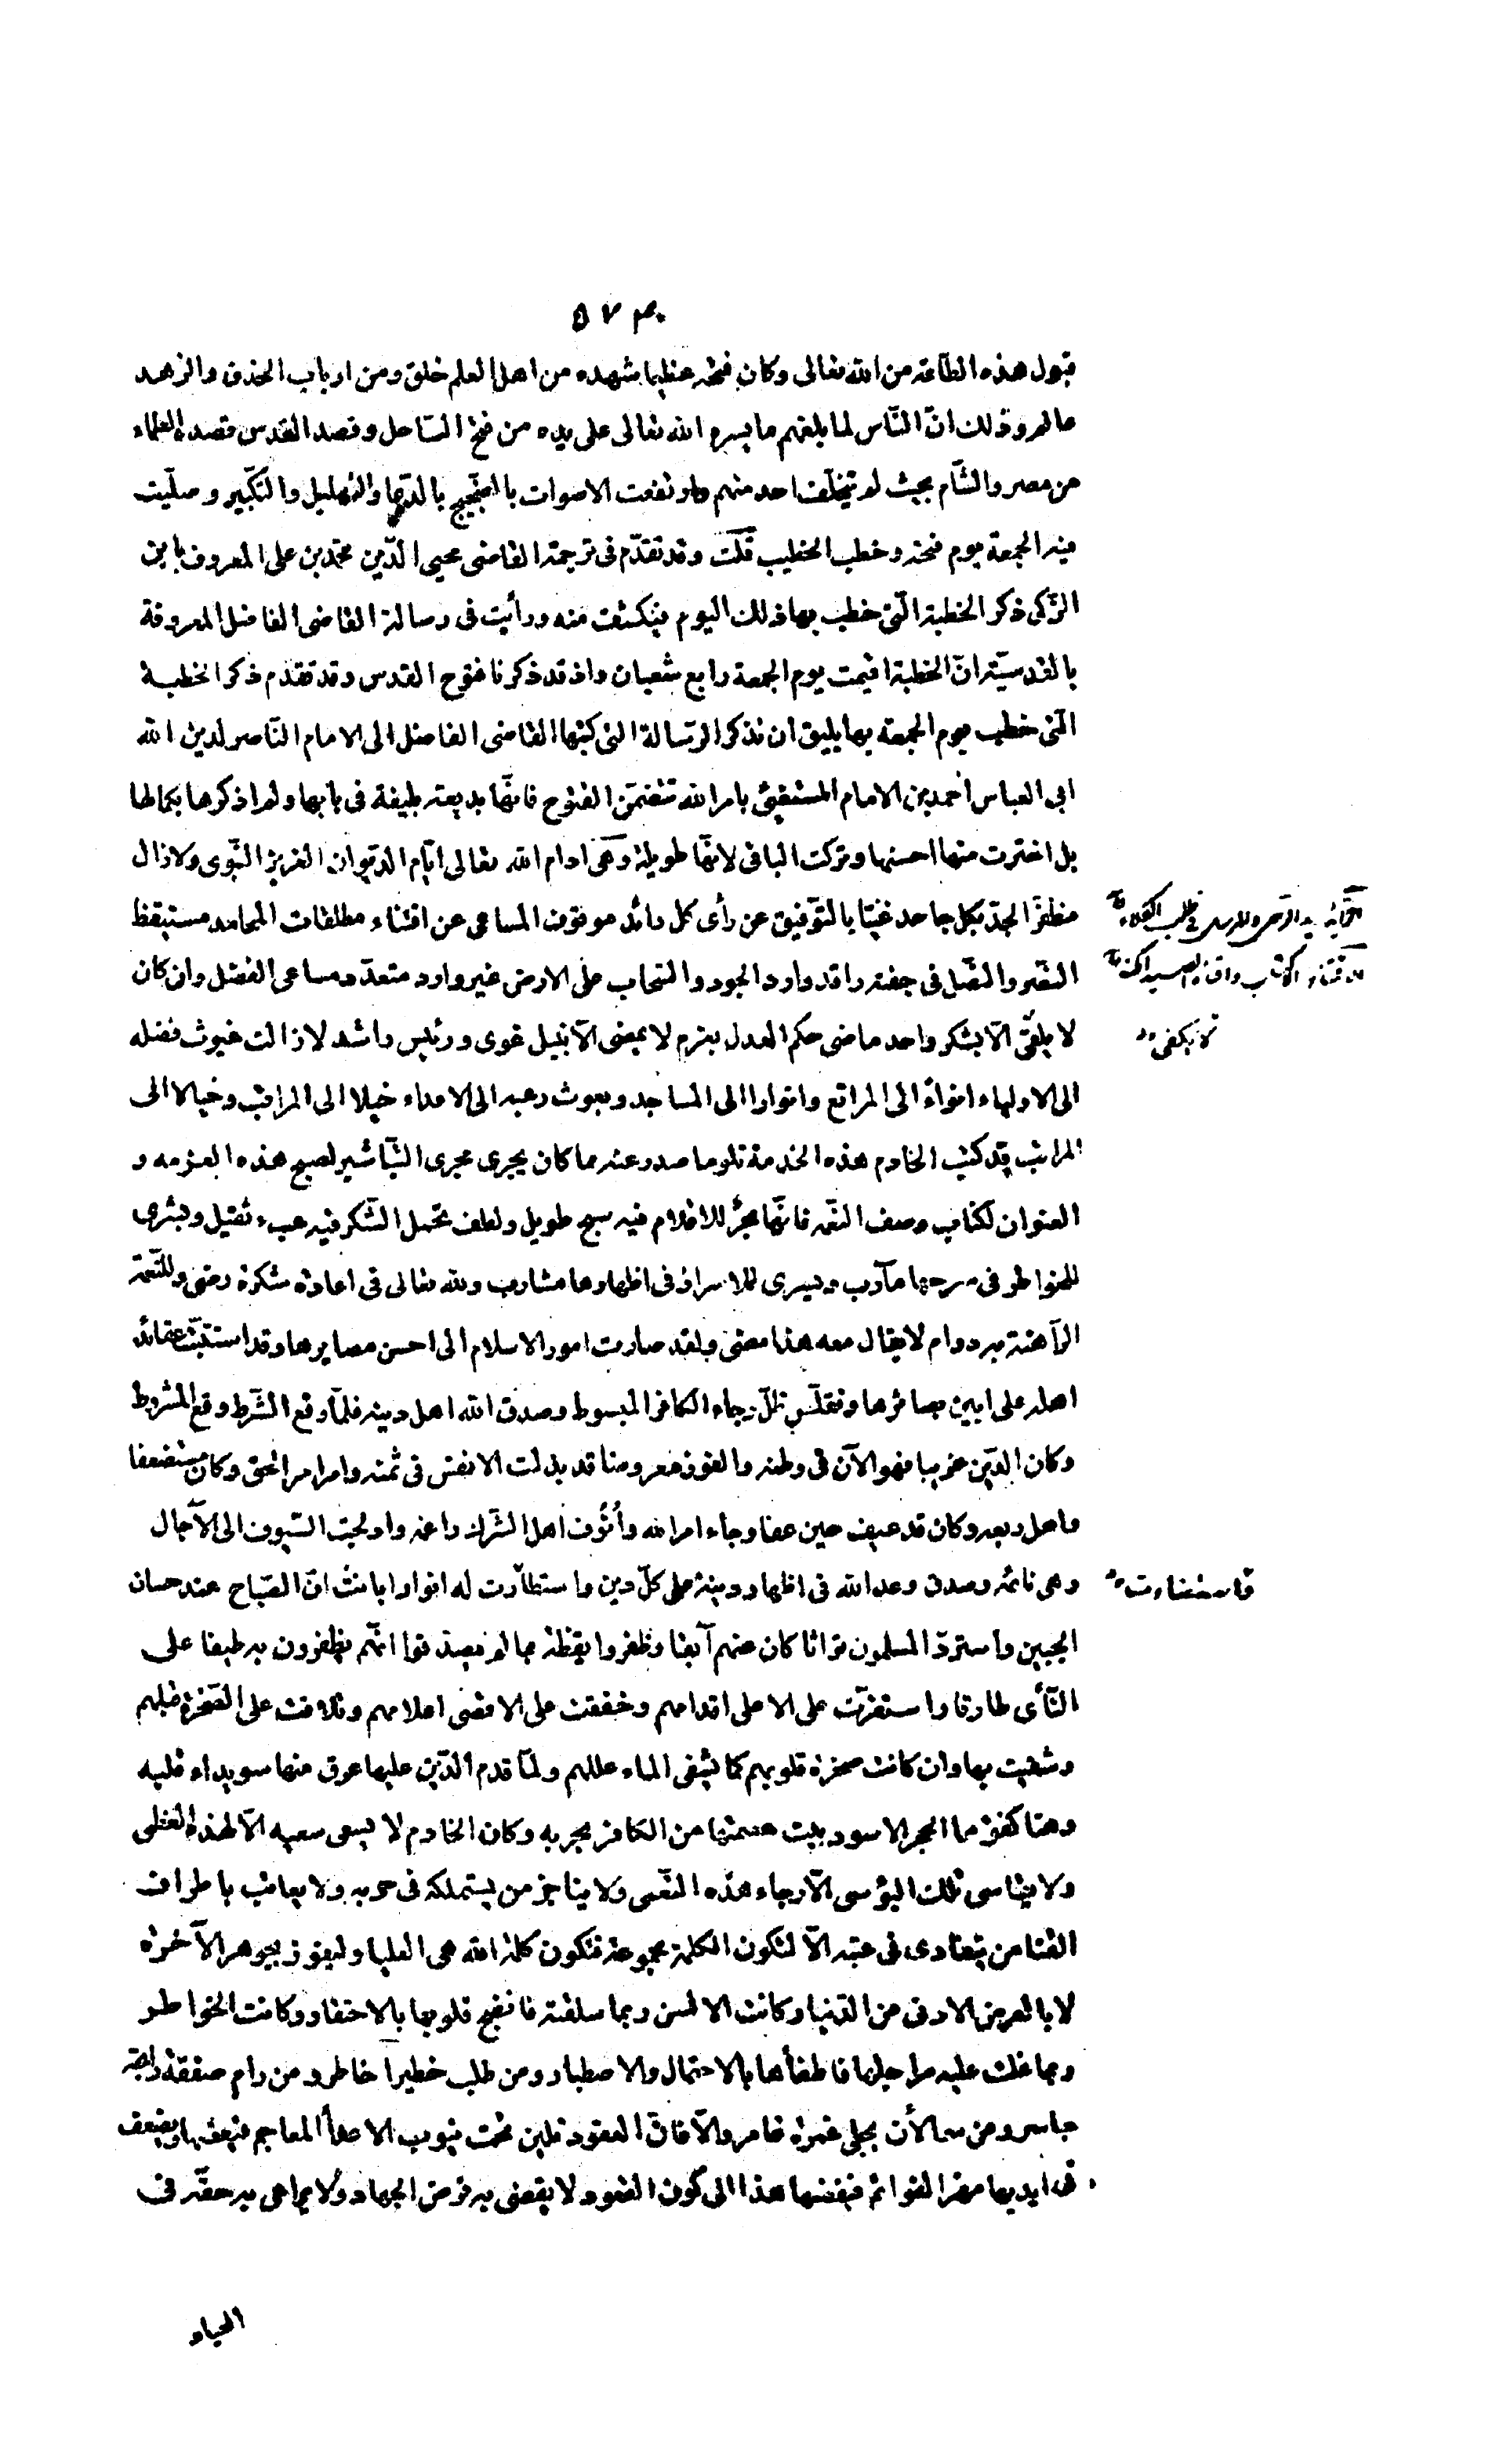 قبول هذه الطاعة من الله تعالى وكان فتحه عظيما شهده من اهل العلم خلق ومن ارباب الخذق والزهد
عالم وذلك انّ النّاس لما بلغهم ما يسره الله تعالى على يده من فتح السّاحل وقصد القدس قصده العلماء
من مصر والشّام بحيث لم يتخلّف احد منهم وارتفعت الاصوات بالضّجيج بالدّعا والتهليل والتّكبير وصلّيت
فيه الجمعة يوم فتحه وخطب الخطيب قلت وقد تقدّم فى ترجمة القاضى محيى الدّين محمّد بن على المعروف بابن
الزّكى ذكر الخطبة الّتى خطب بها ذلك اليوم فيكشف منه ورأيت فى رسالة القاضى الفاضل المعروفة
بالقدسيّة انّ الخطبة اقيمت يوم الجمعة رابع شعبان واذ قد ذكرنا فتوح القدس وقد تقدّم ذكر الخطبة
الّتى خطب يوم الجمعة بها يليق ان نذكر الرّسالة التى كتبها القاضى الفاضل الى الامام النّاصر لدين الله
ابى العباس أحمد بن الامام المستضيئ بامر الله تتضمّن الفتوح فانّها بديعة بليغة فى بابها ولم اذكرها بكمالها
بل اخترت منها احسنها وتركت الباقى لانّها طويلة وهى ادام الله تعالى ايّام الدّيوان العزيز النّبوى ولا زال
مظفّر الجدّ بكل جاحد غنيّا بالتّوفيق عن رأى كل رائد موقوف المساعى عن اقتناء مطلقات المحامد مستيقظ
النّصر والنّصل فى جفنه راقد وارد الجود والسّحاب على الارض غير وارد متعدّد مساعى الفضل وان كان
لا يلقى الّا بشكر واحد ماضى حكم العدل بعزم لا يمضى الّا بنبل غوى وريش راشد لا زالت غيوث فضله
الى الاولياء انواءً الى المراتع وانوارا الى المساجد وبعوث رعبه الى الاعداء خيلا الى المراقب وخيالا الى
المراقد كتب الخادم هذه الخدمة تلو ما صدر عنه مما كان يجرى مجرى التّباشير لصبح هذه العزمه و
العنوان لكتاب وصف النّعمه فانّها بحرٌ للاقلام فيه سبح طويل ولطف تحمل الشّكر فيه عبء ثقيل وبشرى
للخواطر فى شرحها مآرب ويسرى للاسرار فى اظهارها مشارب ولله تعالى فى اعادة شكره رضى وللنّعمة
الرّاهنة به دوام لا يقال معه هذا مضى ولقد صارت امور الاسلام الى احسن مصايرها وقد استتبّت عقائد
اهله على ابين بصائرها وتقلّص ظلّ رجاء الكافر المبسوط وصدق الله اهل دينه فلمّا وقع الشّرط وقع المشروط
وكان الدّين غريبا فهو الآن فى وطنه والفوز معروضا قد بذلت الانفس فى ثمنه وامر امر الحق وكان مستضعفا
واهل ربعه وكان قد عيف حين عفا وجاء امر الله وأنُوف اهل الشّرك راغمه وادلجت السّيوف الى الآجال
وهى نائمه وصدق وعد الله فى اظهار دينه على كلّ دين واستطارت له انوار ابانت انّ الصّباح عند حسان
الجبين واستردّ المسلمون تراثا كان عنهم آبقا وظفروا يقظة بما لم يصدّقوا انّهم يظفرون به طيفا على
النّأى طارقا واستقرّت على الاعلى اقدامهم وخفقت على الاقصى اعلامهم وتلاقت على الصّخرة قبلهم
وشفيت بها وان كانت صخرة قلوبهم كما يشفى الماء عللهم ولمّا قدم الدّين عليها عرق منها سويداء قلبه
وهنا كفؤها الحجر الاسود ببت عصمتها من الكافر بحربه وكان الخادم لا يسعى سعيه الّا لهذه العظمى
ولا يقاسى تلك البؤسى الّا رجاء هذه النّعمى ولا يناجز من يستملكه فى حربه ولا يعاتب باطراف
القنا من يتمادى فى عتبه الّا لتكون الكلمة مجموعة فتكون كلمة الله هى العليا وليفوز بجوهر الآخرة
لا بالعرض الادنى من الدّنيا وكانت الالسن ربما سلقته فانضج قلوبها بالاحتقار وكانت الخواطر
وبما غلت عليه مراجلها فاطفأها بالاحتمال والاصطبار ومن طلب خطيرا خاطر ومن رام صفقة رابحة
جاسر ومن سما لأن يجلى غمرة غامر والّا فانّ القعود تلين تحت نيوب الاعداء المعاجم فيعضّها ويضعف
فى ايديها مهز القوائم فيفضها هذا الى كون القعود لا يقضى به فرض الجهاد ولا يراعى به حقّه فى
لا يكفى
فاستضاءت
الجهاد